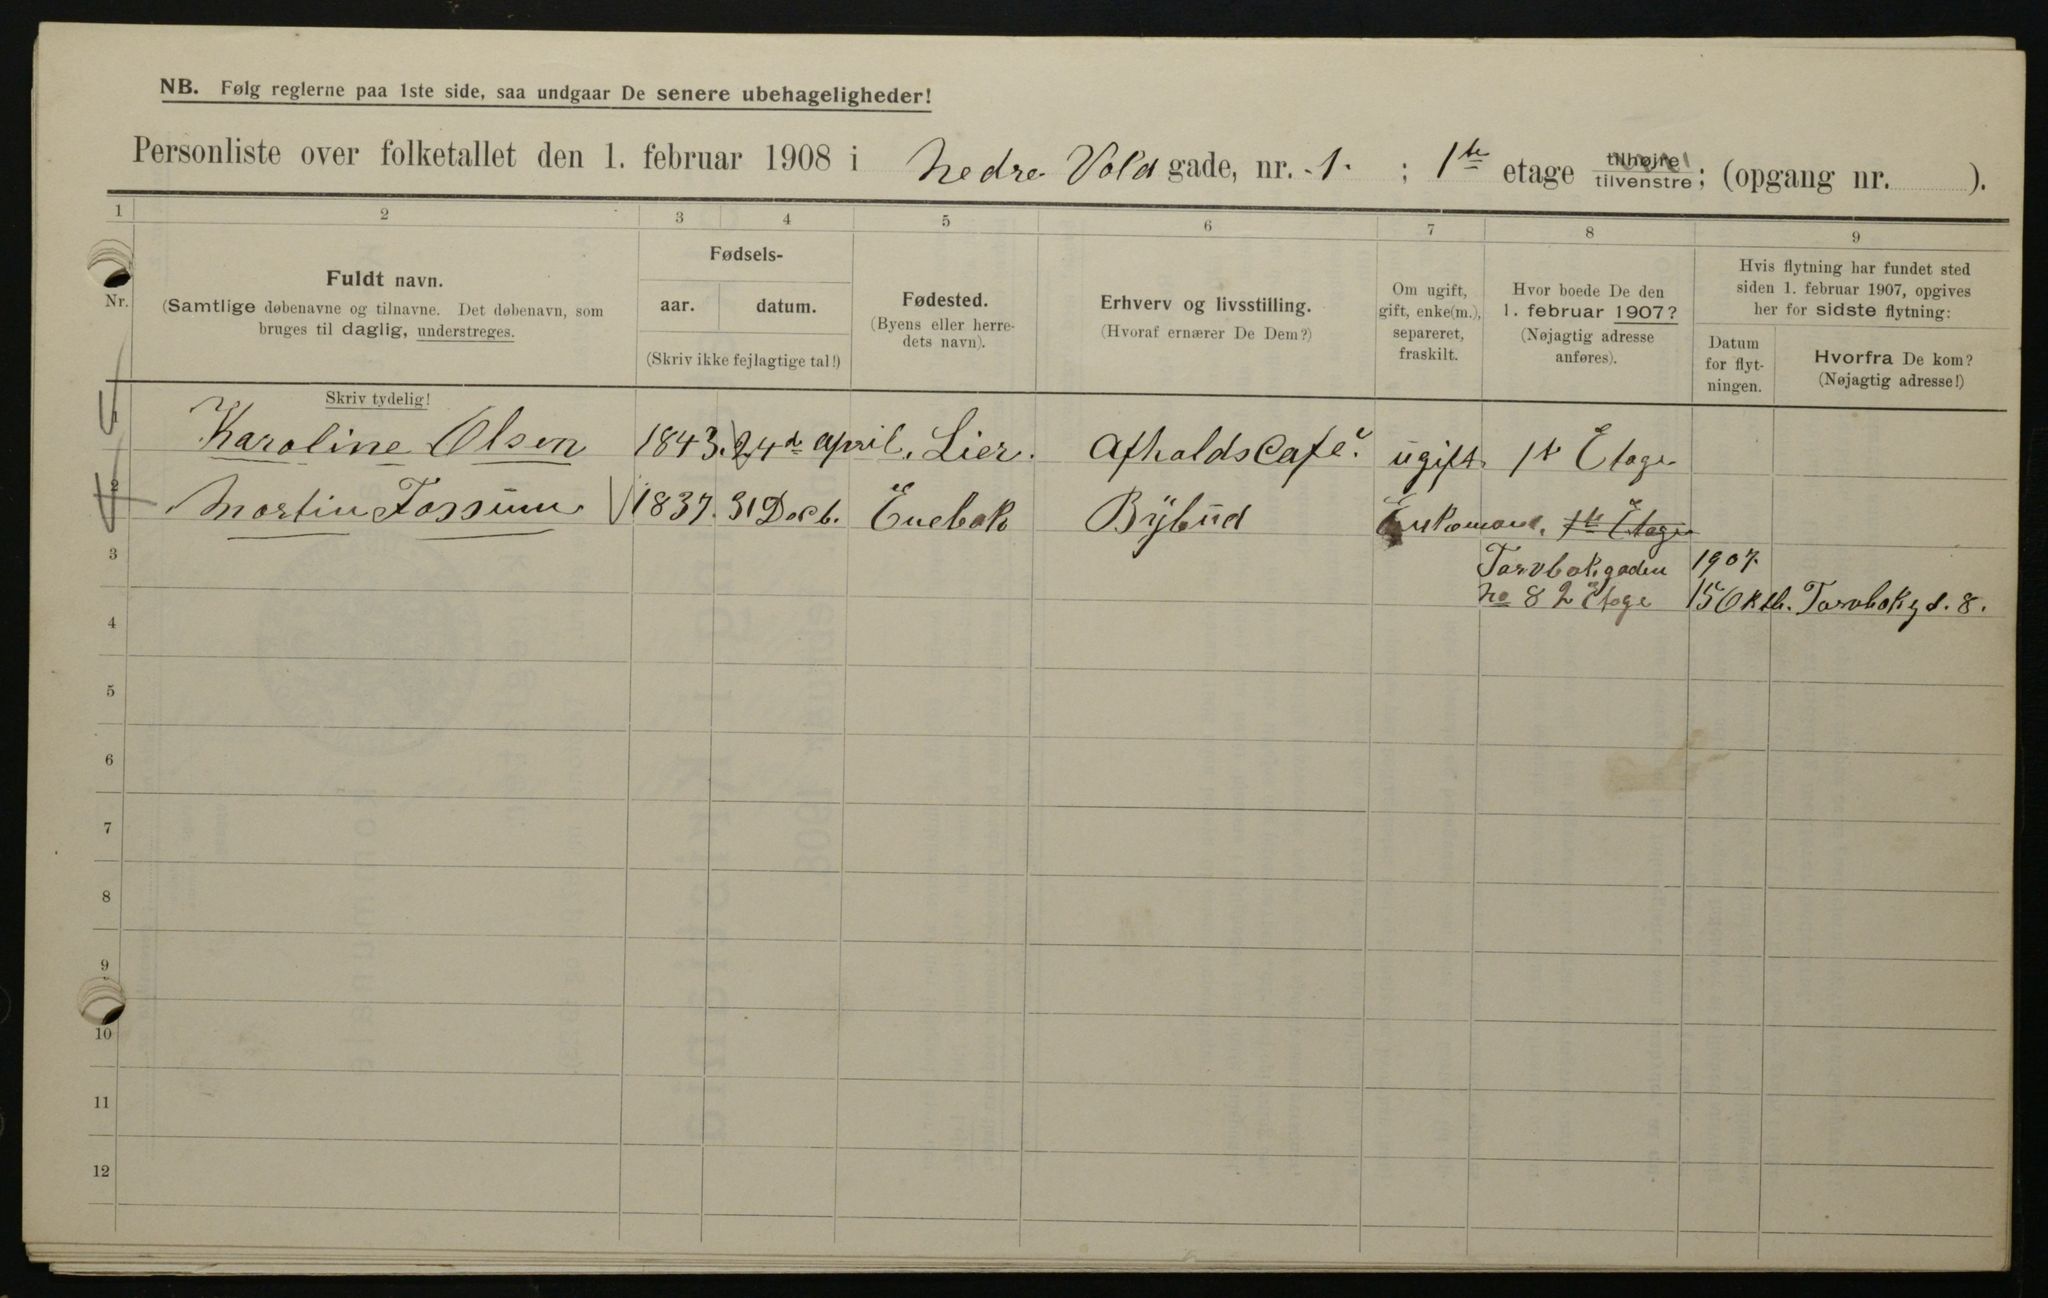 NB. Følg reglerne paa 1ste side, saa undgaar De senere ubehageligheder!
Personliste over folketallet den 1. februar 1908 i Nedre Vold gade, nr. 1. ; 1ste etage tilhøire tilvenstre; (opgang nr. ).
1 2 3 4 5 6 7 8 9
Nr.
Fuldt navn.
(Samtlige døbenavne og tilnavne. Det døbenavn, som
bruges til daglig, understreges.
Skriv tydelig!
Fødsels-
aar. datum.
(Skriv ikke fejlagtige tal!)
Fødested.
(Byens eller herre-
dets navn).
Erhverv og livsstilling.
(Hvoraf ernærer De Dem?)
Om ugift,
gift, enke(m.),
separeret,
fraskilt.
Hvor boede De den
1. februar 1907?
(Nøjagtig adresse
anføres).
Hvis flytning har fundet sted
siden 1. februar 1907, opgives
her for sidste flytning:
Datum
for flyt-
ningen.
Hvorfra De kom?
(Nøjagtig adresse!)
1 Karoline Olsen 1843. 24d april. Lier. Afholds Café. ugift. 1ste Etage
2 Martin Fossum 1837. 31 Decb. Enebak Bybud Enkemand. 1ste Etage
3 Torvbakgaden 1907.
No 8 2 Etage 15 Oktb. Torvbakgd. 8.
4
5
6
7
8
9
10
11
12